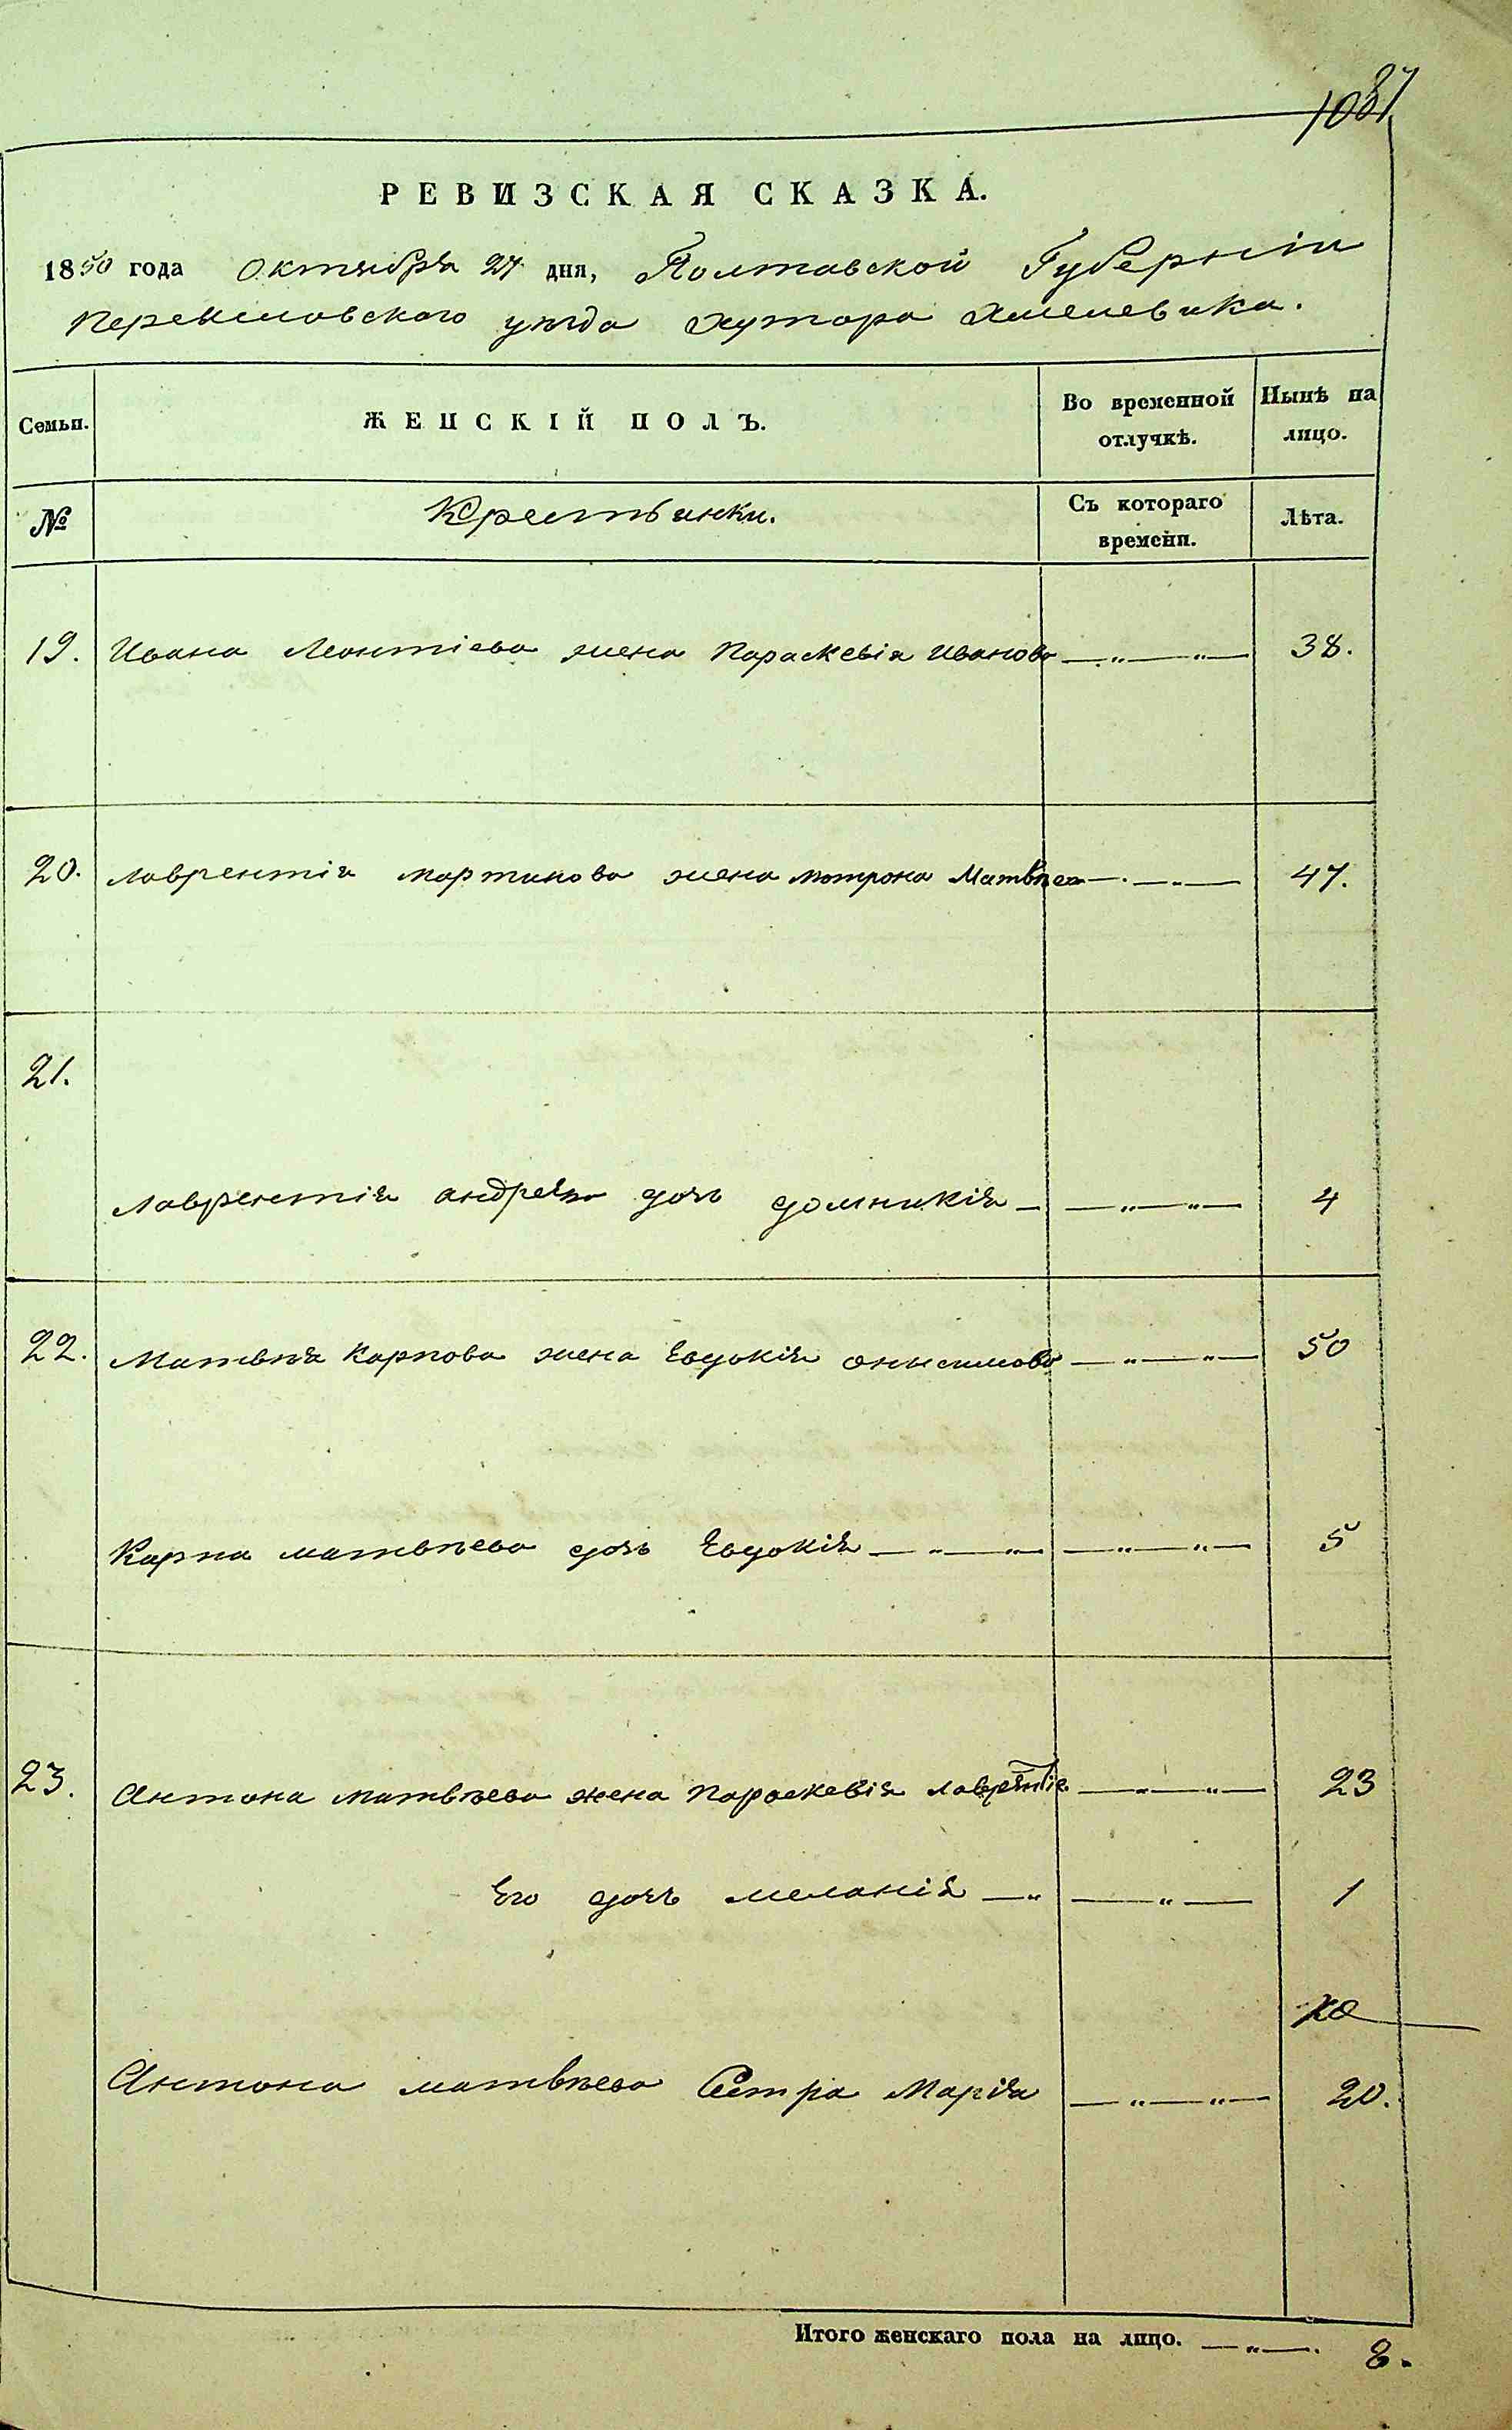 1087
РЕВИЗСКАЯ СКАЗКА.
1850 года Октября 27 дня, Полтавской Губерніи
Переясловского уѣзда Хутора Хмелевика.
Семьи. ЖЕНСКІЙ ПОЛЪ. Во временной отлучкѣ. Нынѣ на лицо.
№ Крестьянки. Съ котораго времени. Лѣта.
19. Ивана Леонтіева жена Параскевія Иванова —„—„— 38.
20. Лаврентія Мартинова жена Мотрона Матвѣева —„—„— 47.
21.
Лаврентія Андреева дочь Домникія — —„—„— 4
22. Матвѣя Карпова жена Евдокія Онисимова —„—„— 50
Карпа Матвѣева дочь Евдокія —„—„— —„—„— 5
23. Антона Матвѣева жена Параскевія Лаврентіева —„—„— 23
Его дочь Меланія —„ —„— 1
Антона Матвѣева Сестра Марія —„—„— 20.
Итого женскаго пола на лицо. —„—. 8.